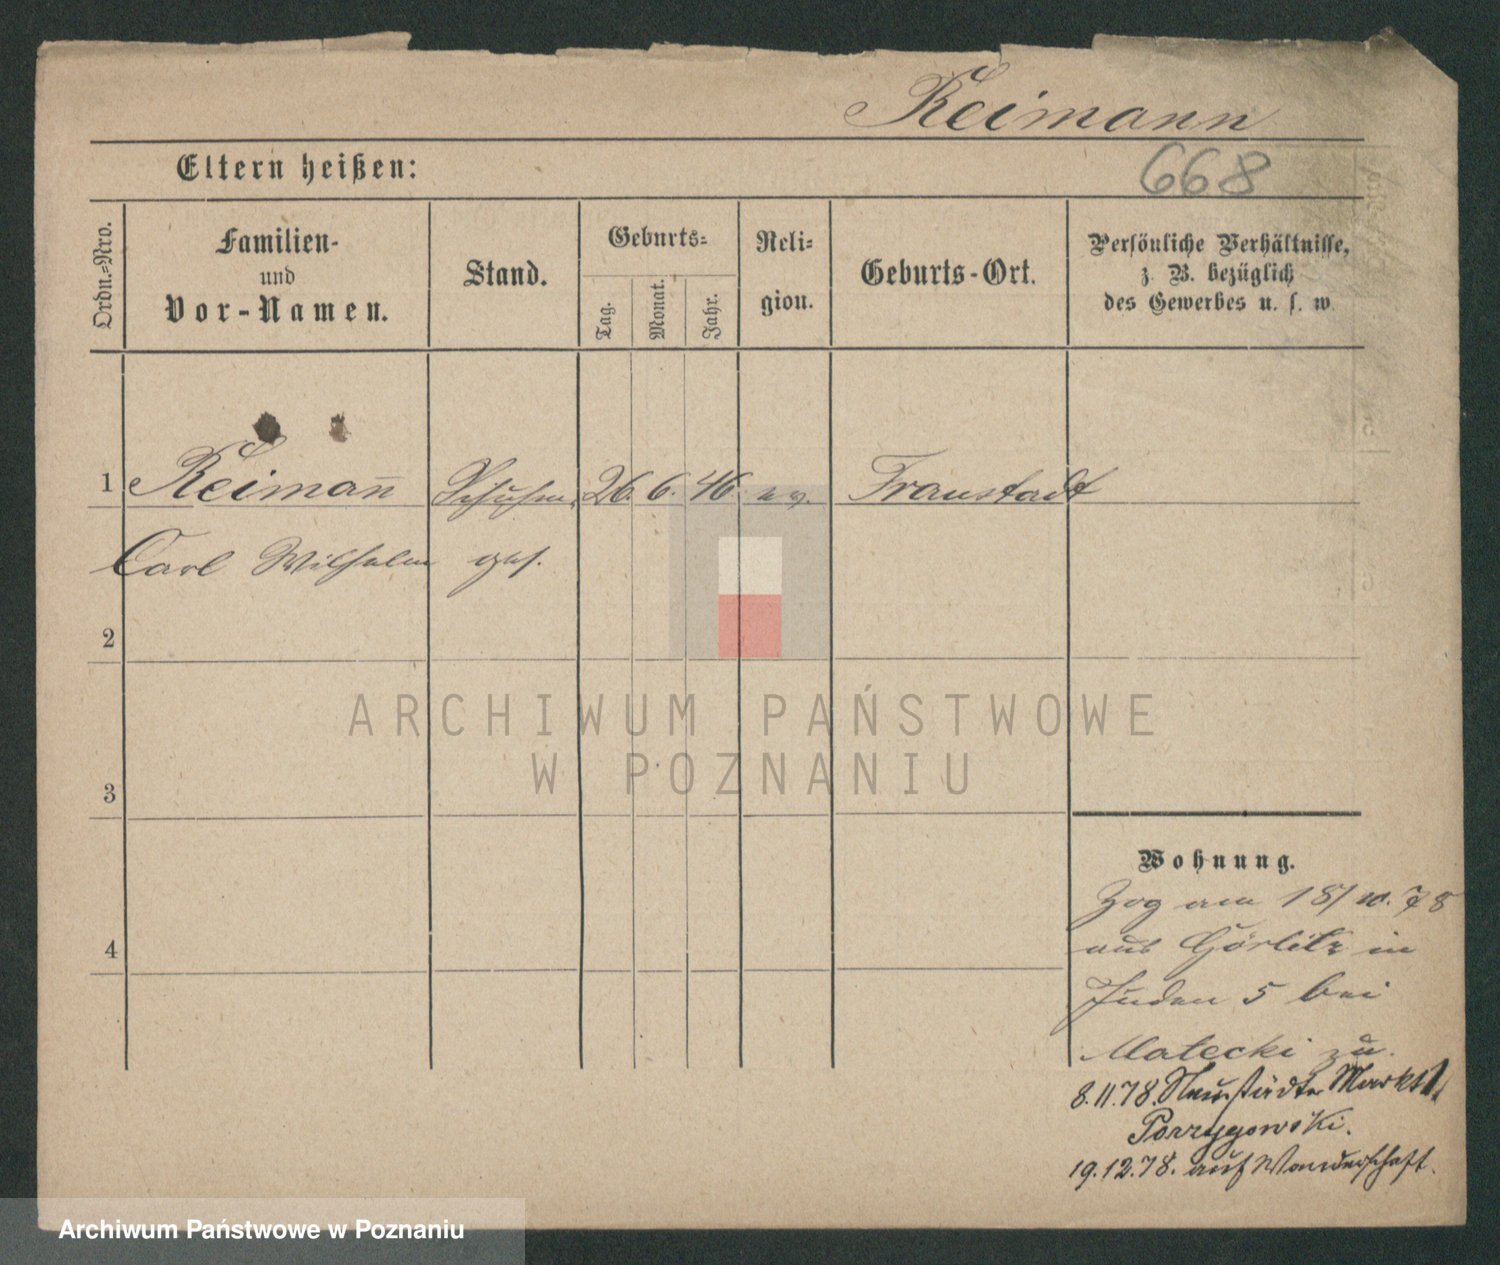 Reimann
Eltern heißen:
668
Ordn.=Nro.
Familien-
und
Vor-Namen.
Stand.
Geburts=
Tag.
Monat.
Jahr.
Reli=
gion.
Geburts-Ort.
Persönliche Verhältnisse,
z. B. bezüglich
des Gewerbes u. s. w.
1 Reiman̄ Schuhm. 26. 6. 46. ev. Fraustadt
Carl Wilhelm ges.
2
3
4
Wohnung.
Zog am 18/10. 78
aus Görlitz in
Juden 5 bei
Matecki zu.
8.11.78. Neustädter Markt 1.
19.12.78. auf Wanderschaft.
ARCHIWUM PAŃSTWOWE
W POZNANIU
Archiwum Państwowe w Poznaniu